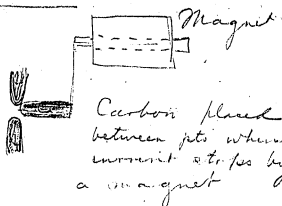 Magnet
Carbon placed
between pts when
current stops by
a magnet